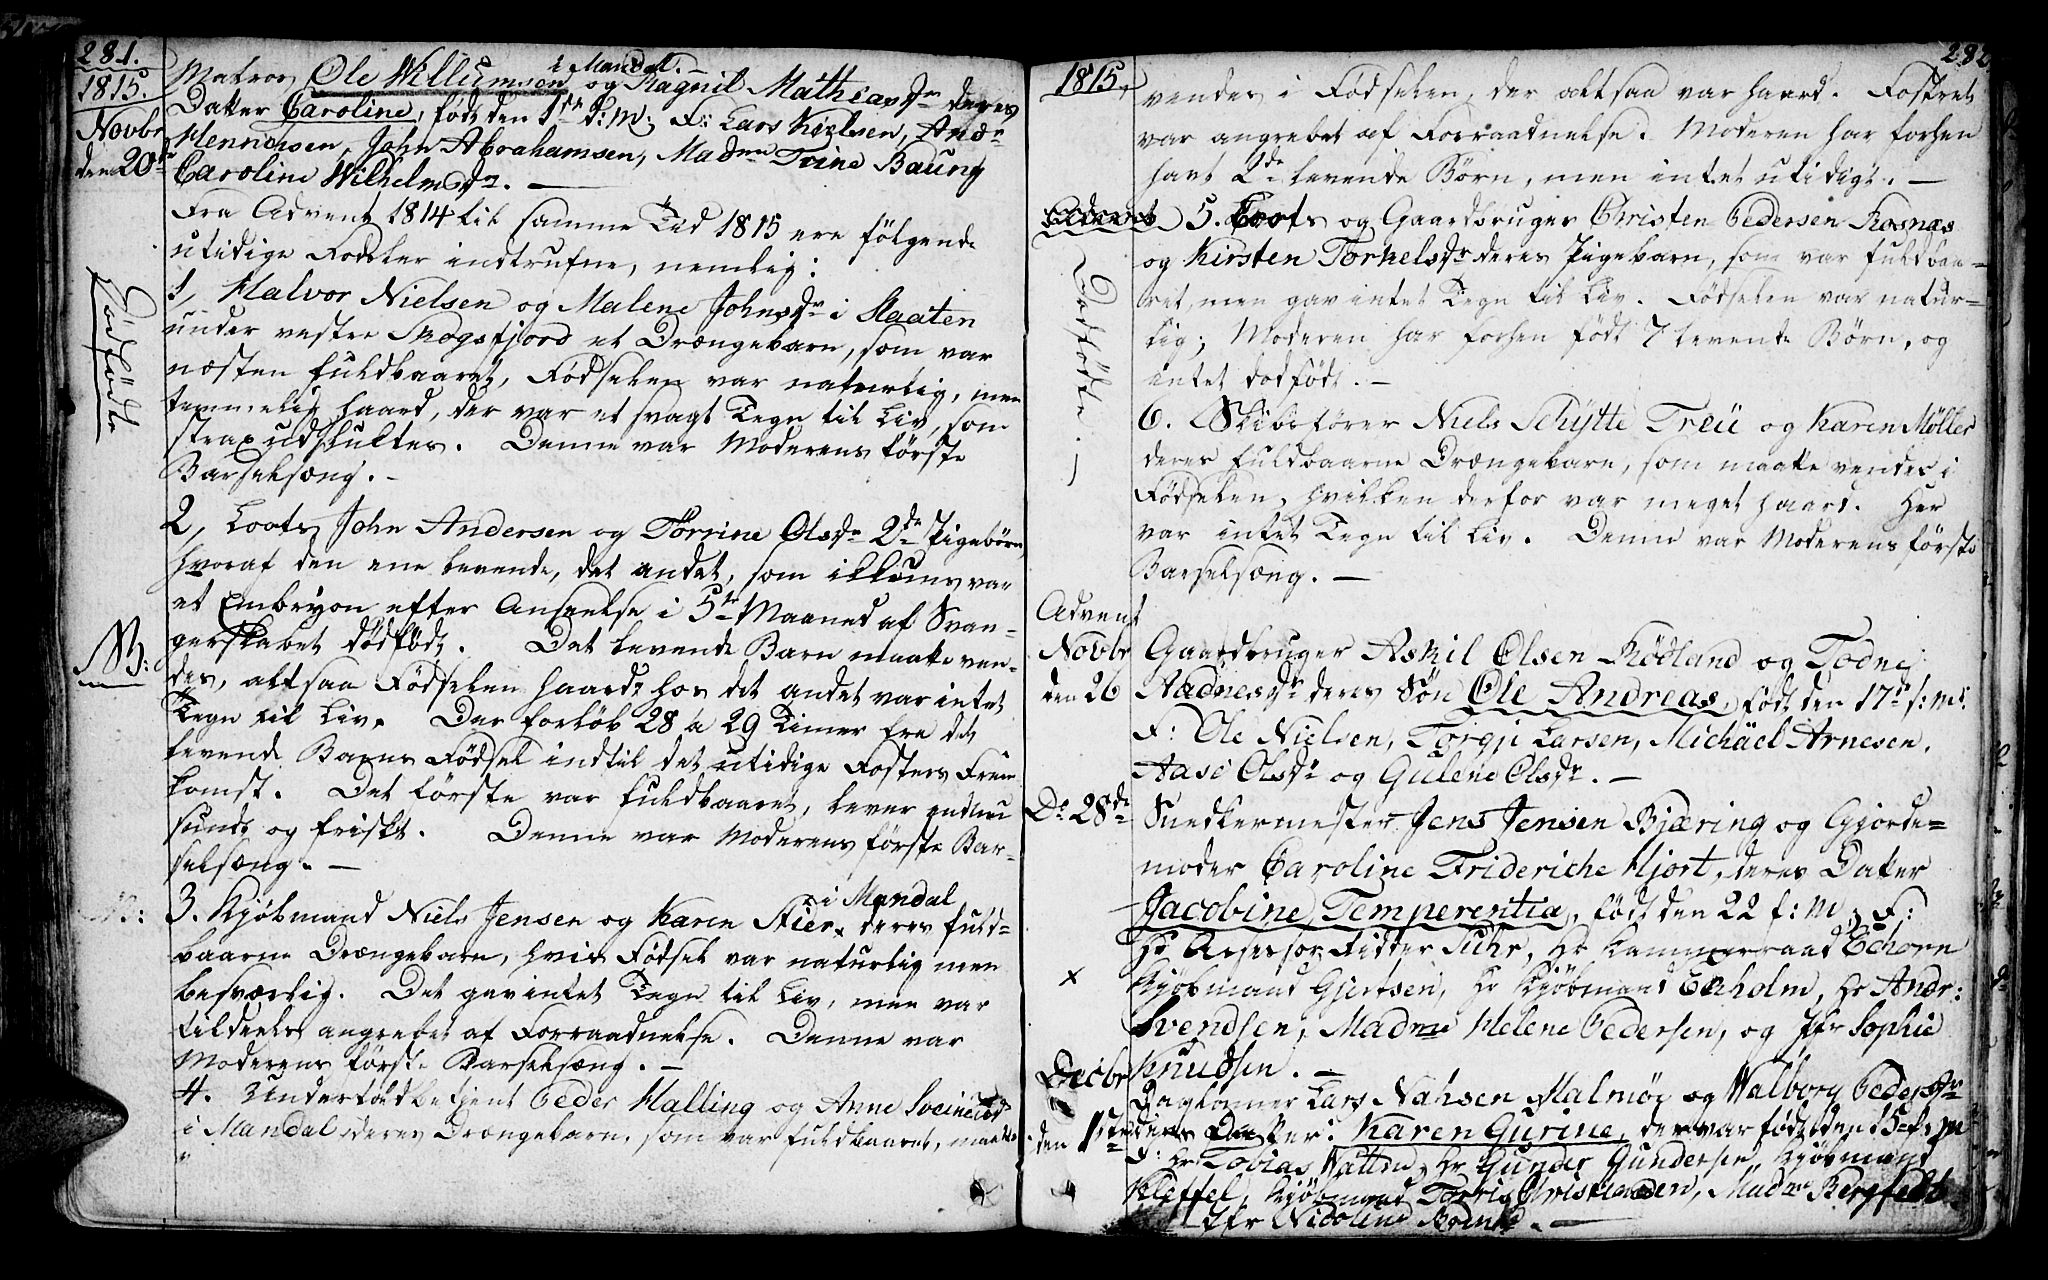 281.
1815.
Novbr
den 20de
Matros Ole Willumsen i Mandal.- og Ragnil Mathiasdr deres
Datter Caroline, født den 1ste d: M: F: Lars Nielsen, Andr
Henrichsen, John Abrahamsen, Madme Trine Baung
Caroline Wilhelmsdr. —
Fra Advent 1814 til samme Tid 1815 ere følgende
utidige Fødsler indtrufne, nemlig:
Dødfødte
1, Halvor Nielsen og Malene Johnsdr i Slaaten
under vestre Skogsfjord et Drængebarn, som var
næsten fuldbaaret, Fødselen var naturlig, men
temmelig haard, der var et svagt Tegn til Liv, som
strax udsluktes. Denne var Moderens første
Barselsæng. -
2, Loots John Andersen og Torrine Olsdr 2de Pigebørn,
hvoraf den ene levende, det andet, som ikkuns var
et Embryon efter Anseelse i 5te Maaned af Svan-
NB:
gerskabet dødfødt. Det levende Barn maatte ven-
des, altsaa Fødselen haard; hos det andet var intet
Tegn til Liv. Der forløb 28 a 29 Timer fra det
levende Barns Fødsel indtil det utidige Fosters Frem-
komst. Det første var fuldbaaret, lever endnu
sundt og friskt. Denne var Moderens første Bar-
selsæng. —
NB:
3. Kjøbmand Niels Jensen og Karen Stier i Mandal deres fuld-
baarne Drængebarn, hvis Fødsel var naturlig men
besværlig. Det gav intet Tegn til Liv, men var
tildeels angrebet af Forraadnelse. Denne var
Moderens første Barselsæng. —
4. Undertoldbetjent Peder Halling og Anne
i Mandal deres Drængebarn, som var fuldbaaret, maatte
282
1815,
vendes i Fødselen, der altsaa var haard. Fostret
var angrebet af Forraadnelse. Moderen har forhen
havt 2de levende Børn, men intet utidigt. —
Advent
Dødfødte. -
5. Loots og Gaardbruger Christen Pedersen Rosnæs
og Kirsten Torkelsdr deres Pigebarn, som var fuldbaa-
ret, men gav intet Tegn til Liv. Fødselen var natur-
lig; Moderen har forhen født 7 levende Børn, og
intet dødfødt. -
6. Skibsfører Niels Schytte Treü og Karen Møller
deres fuldbaarne Drængebarn, som maatte vendes i
Fødselen, hvilken derfor var meget haard. Her
var intet Tegn til Liv. Denne var Moderens første
Barselsæng. —
Advent
Novbr
den 26
Gaardbruger Askil Olsen Rødland og Todne
Aadnesdr deres Søn Ole Andreas, født den 17de s: M:
F: Ole Nielsen, Torgji Larsen, Michäel Arnesen.
Aase Olsdr og Gulene Olsdr. —
Do 28de
Snedkermester Jens Jensen Bjæring og Gjorde-
moder Caroline Frideriche Hjort, deres Datter
Jacobine Temperentia, født den 22 s: M; F:
Hr Assessor Ridder Suhr, Hr Kammerraad Echorn
x
Kjøbmand Gjertsen, Hr Kjøbmand Ekholm, Hr Andr:
Svendsen, Madme Helene Pedersen, og Jfr Sophie
Knudsen. —
Decbr
den 1ste
Dagløner Lars Nahsen Malmøe og Walborg Pedersdr
deres Datter. Karen Gurine, der var født den 15 f: M
F: Hr Tobias Wattne, Hr Gunder Gundersen, Kjøbmand
Kleffel, Kjøbmand Torris Christiansen, Madme Bergfeldt
Jfr Nicoline . —